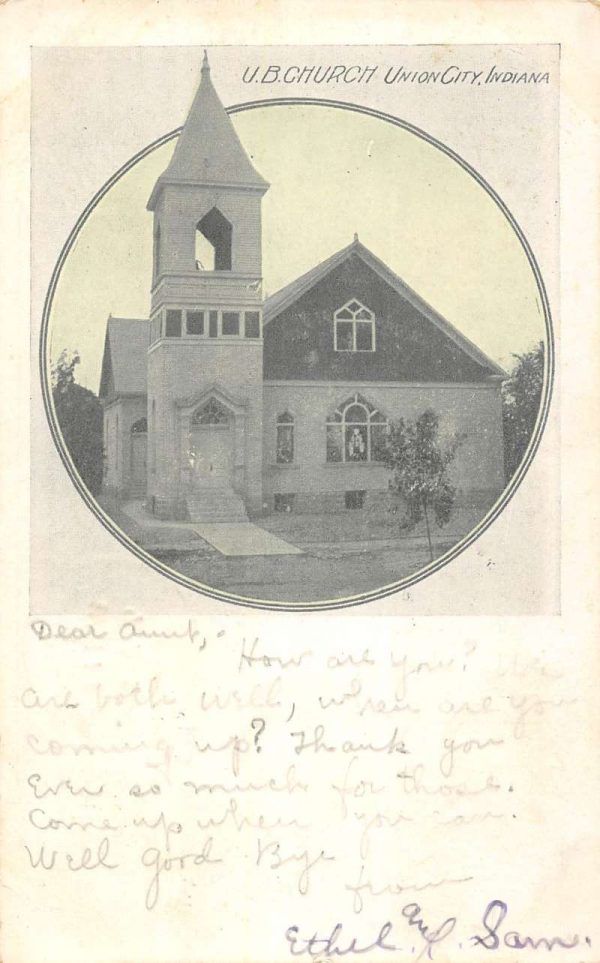 U.B. CHURCH UNION CITY, INDIANA
Dear Aunt,
How are you? We
are both well, when are you
coming up? Thank you
Ever so much for those.
Come up when you can.
Well Good Bye
from
Ethel an R. Sam.